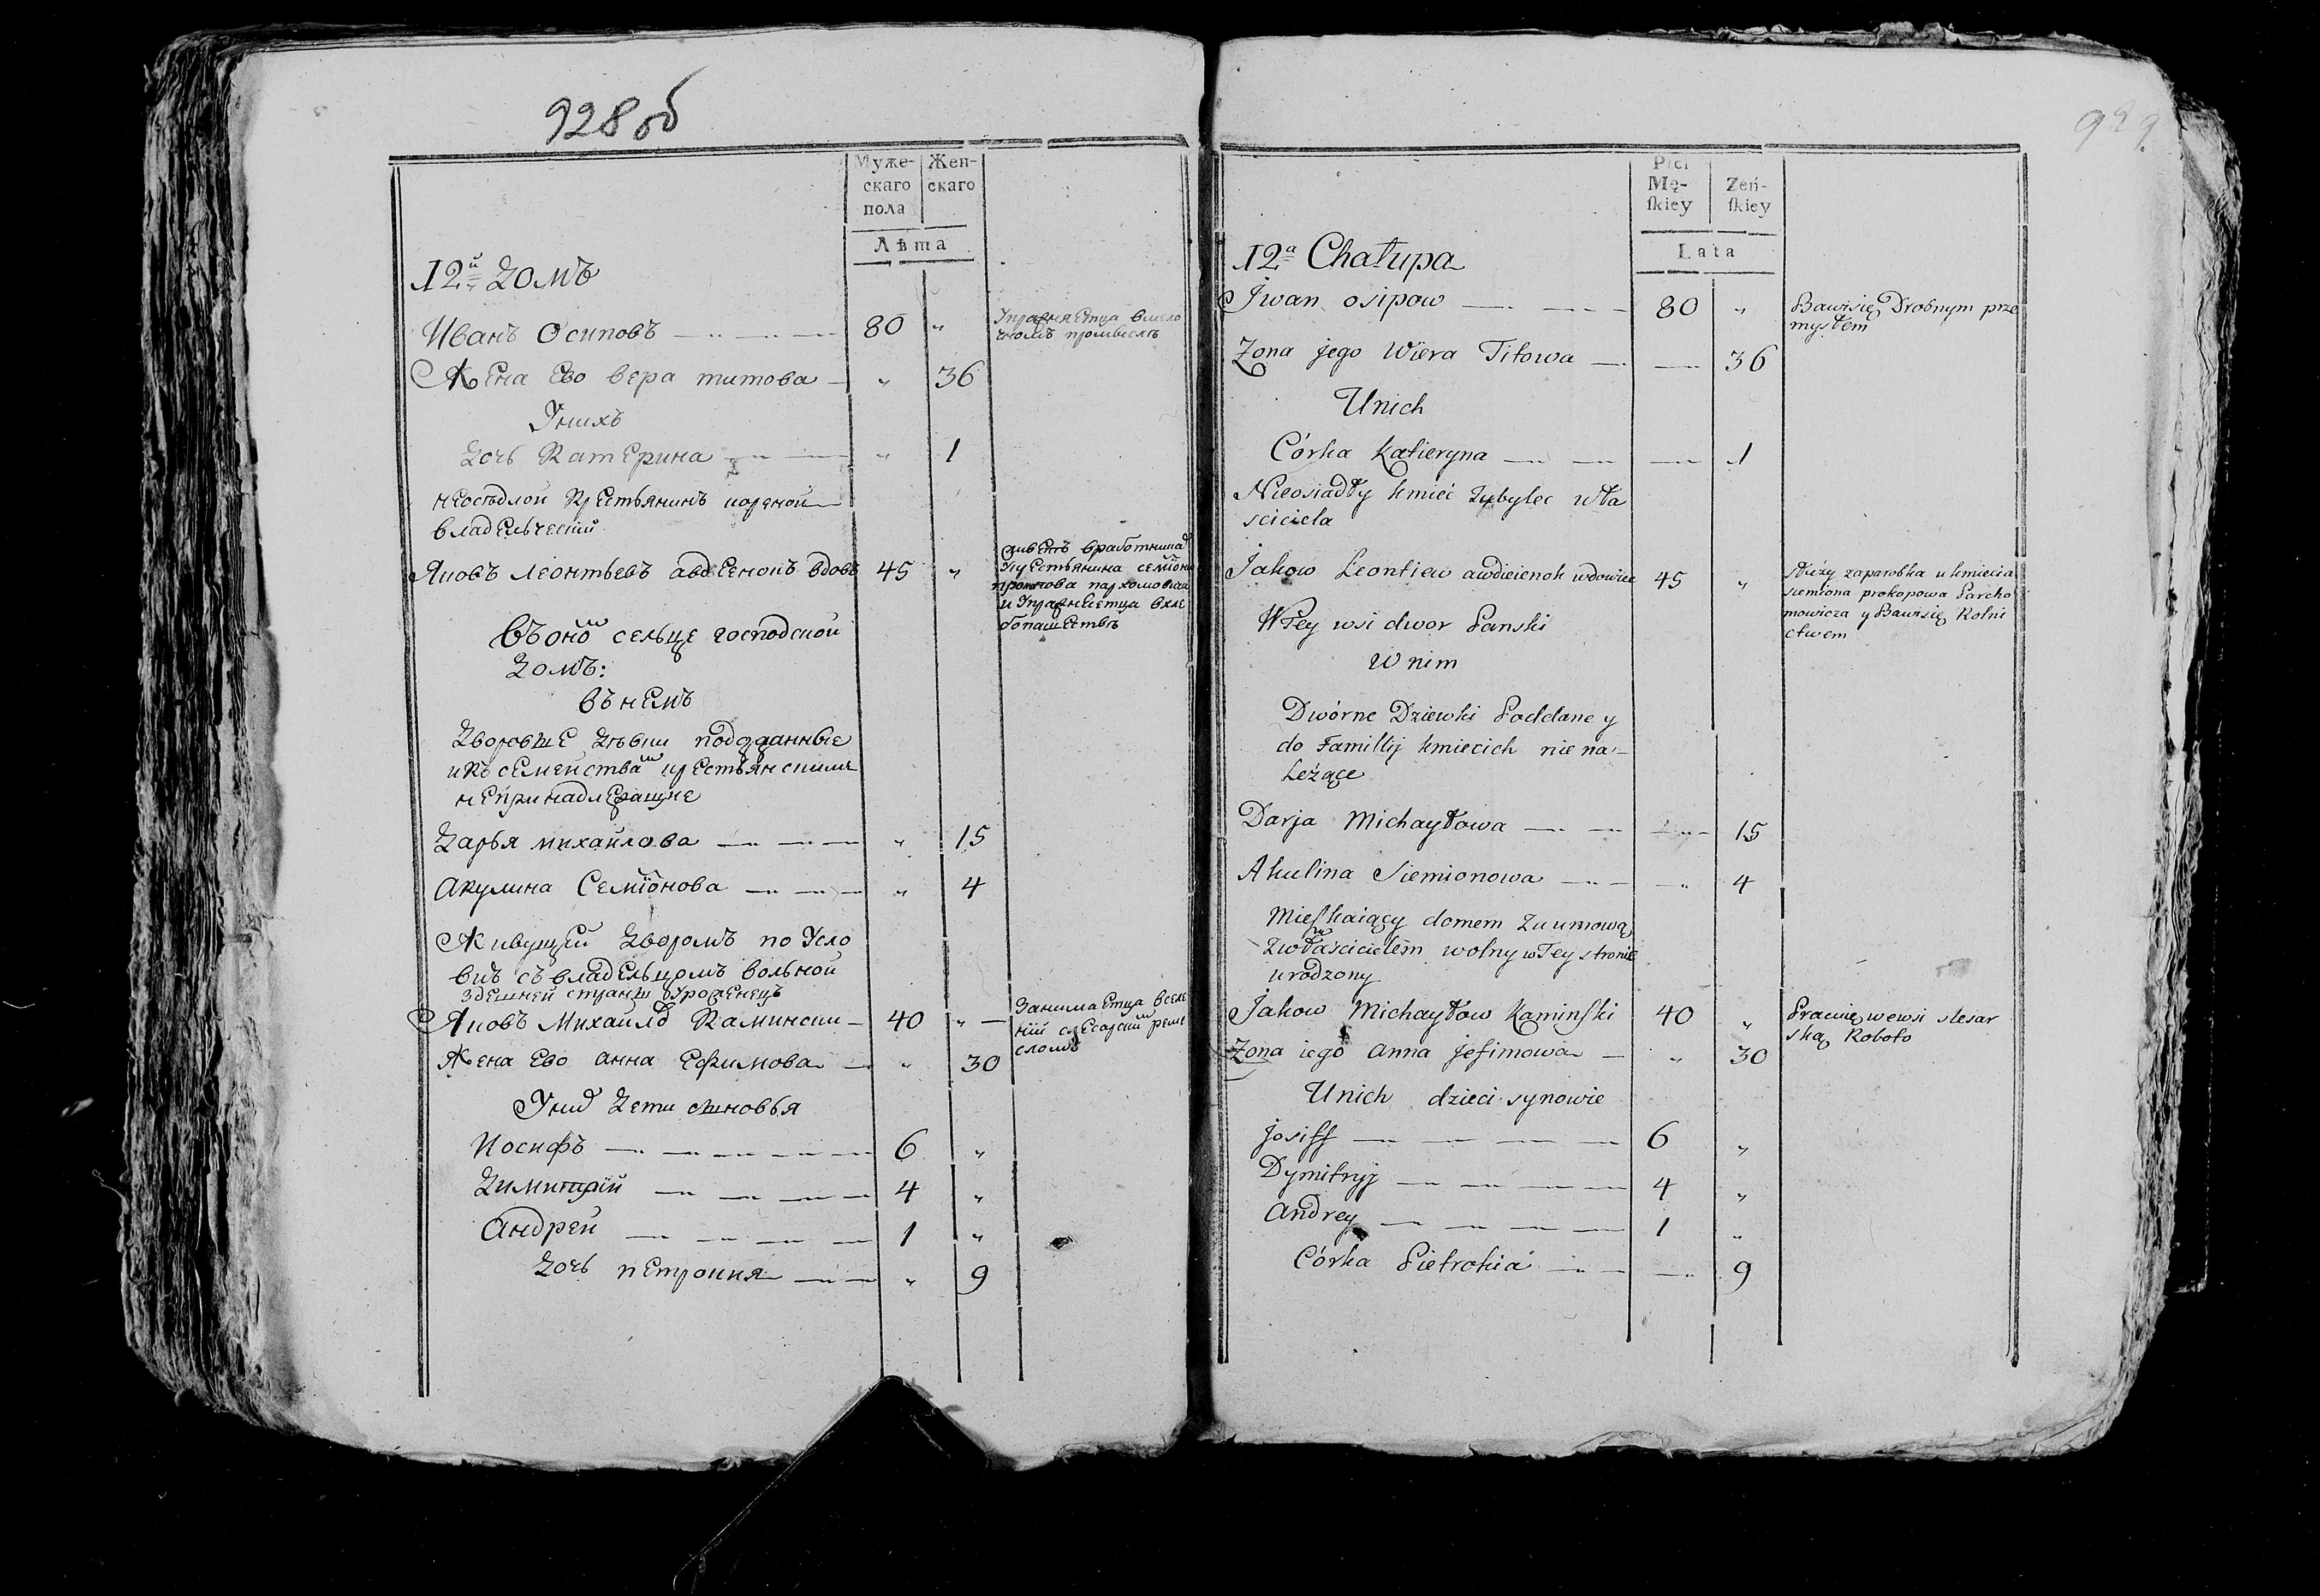 928 об
Муже-
скаго
пола
Жен-
скаго
Лѣта
12й Домъ
Иванъ Осиповъ 80 "
Упражняетца вмело
чномъ промыслѣ
Жена Ево вера титова " 36
Унихъ
Дочь Катерина " 1
неоседлой крестьянинъ
владельческій
Яковъ леонтьевъ авдеенокъ вдовъ 45 "
живетъ вработника
Укрестьянина семиона
пархомовича
и Упражнѣетца вхле
бопашестве
Въономъ сельце господской
Домъ:
внемъ
Дворовые девки подданные
икъ семействамъ крестьянскимъ
непринадлежащие
Дарья михайлова " 15
Акулина Семионова " 4
Живущей Дворомъ по Усло
вию съ владельцомъ вольной
здешней страны Уроженецъ
Яковъ Михайловъ Камински 40 "
Занимаетца вселе
нии слесарскимъ реме
сломъ
Жена Ево анна Ефимова " 30
Унихъ Дети сыновья
Иосифъ 6 "
Димитрій 4 "
Андрей 1 "
Дочь петрокия " 9
929
Płci
Mę-
ſkiey
Zeń-
ſkiey
Lata
12a Chałupa
Jwan osipow 80 "
Bawisię Drobnym prze
mysłem
Zona jego Wiera Titowa 36
Unich
Córka Katieryna 1
Nieosiadły kmieć zybylec wła
sciciela
Jakow Leontiew awdieienok wdowiec 45 "
Służy zaparobka u kmiecia
siemiona prokopowa Parcho
mowicza y Bawisię Rolni
ctwem
WTey wsi dwor Panski
W nim
Dwórne Dziewki Poddane y
do Familij kmiecich nie na-
Leżące
Darja Michayłowa 15
Akulina Siemionowa " 4
Mieſkaiący domem zaumową
zwłaścicielem wolny wTey stronie
urodzony
Jakow Michayłow Kaminſki 40 "
Pracuię wewsi slesar
ską Roboto
Zona iego Anna Jefimowa " 30
Unich dzieci synowie
Josiff 6 "
Dymitryj 4 "
Andrey 1 "
Córka Pietrokia 9